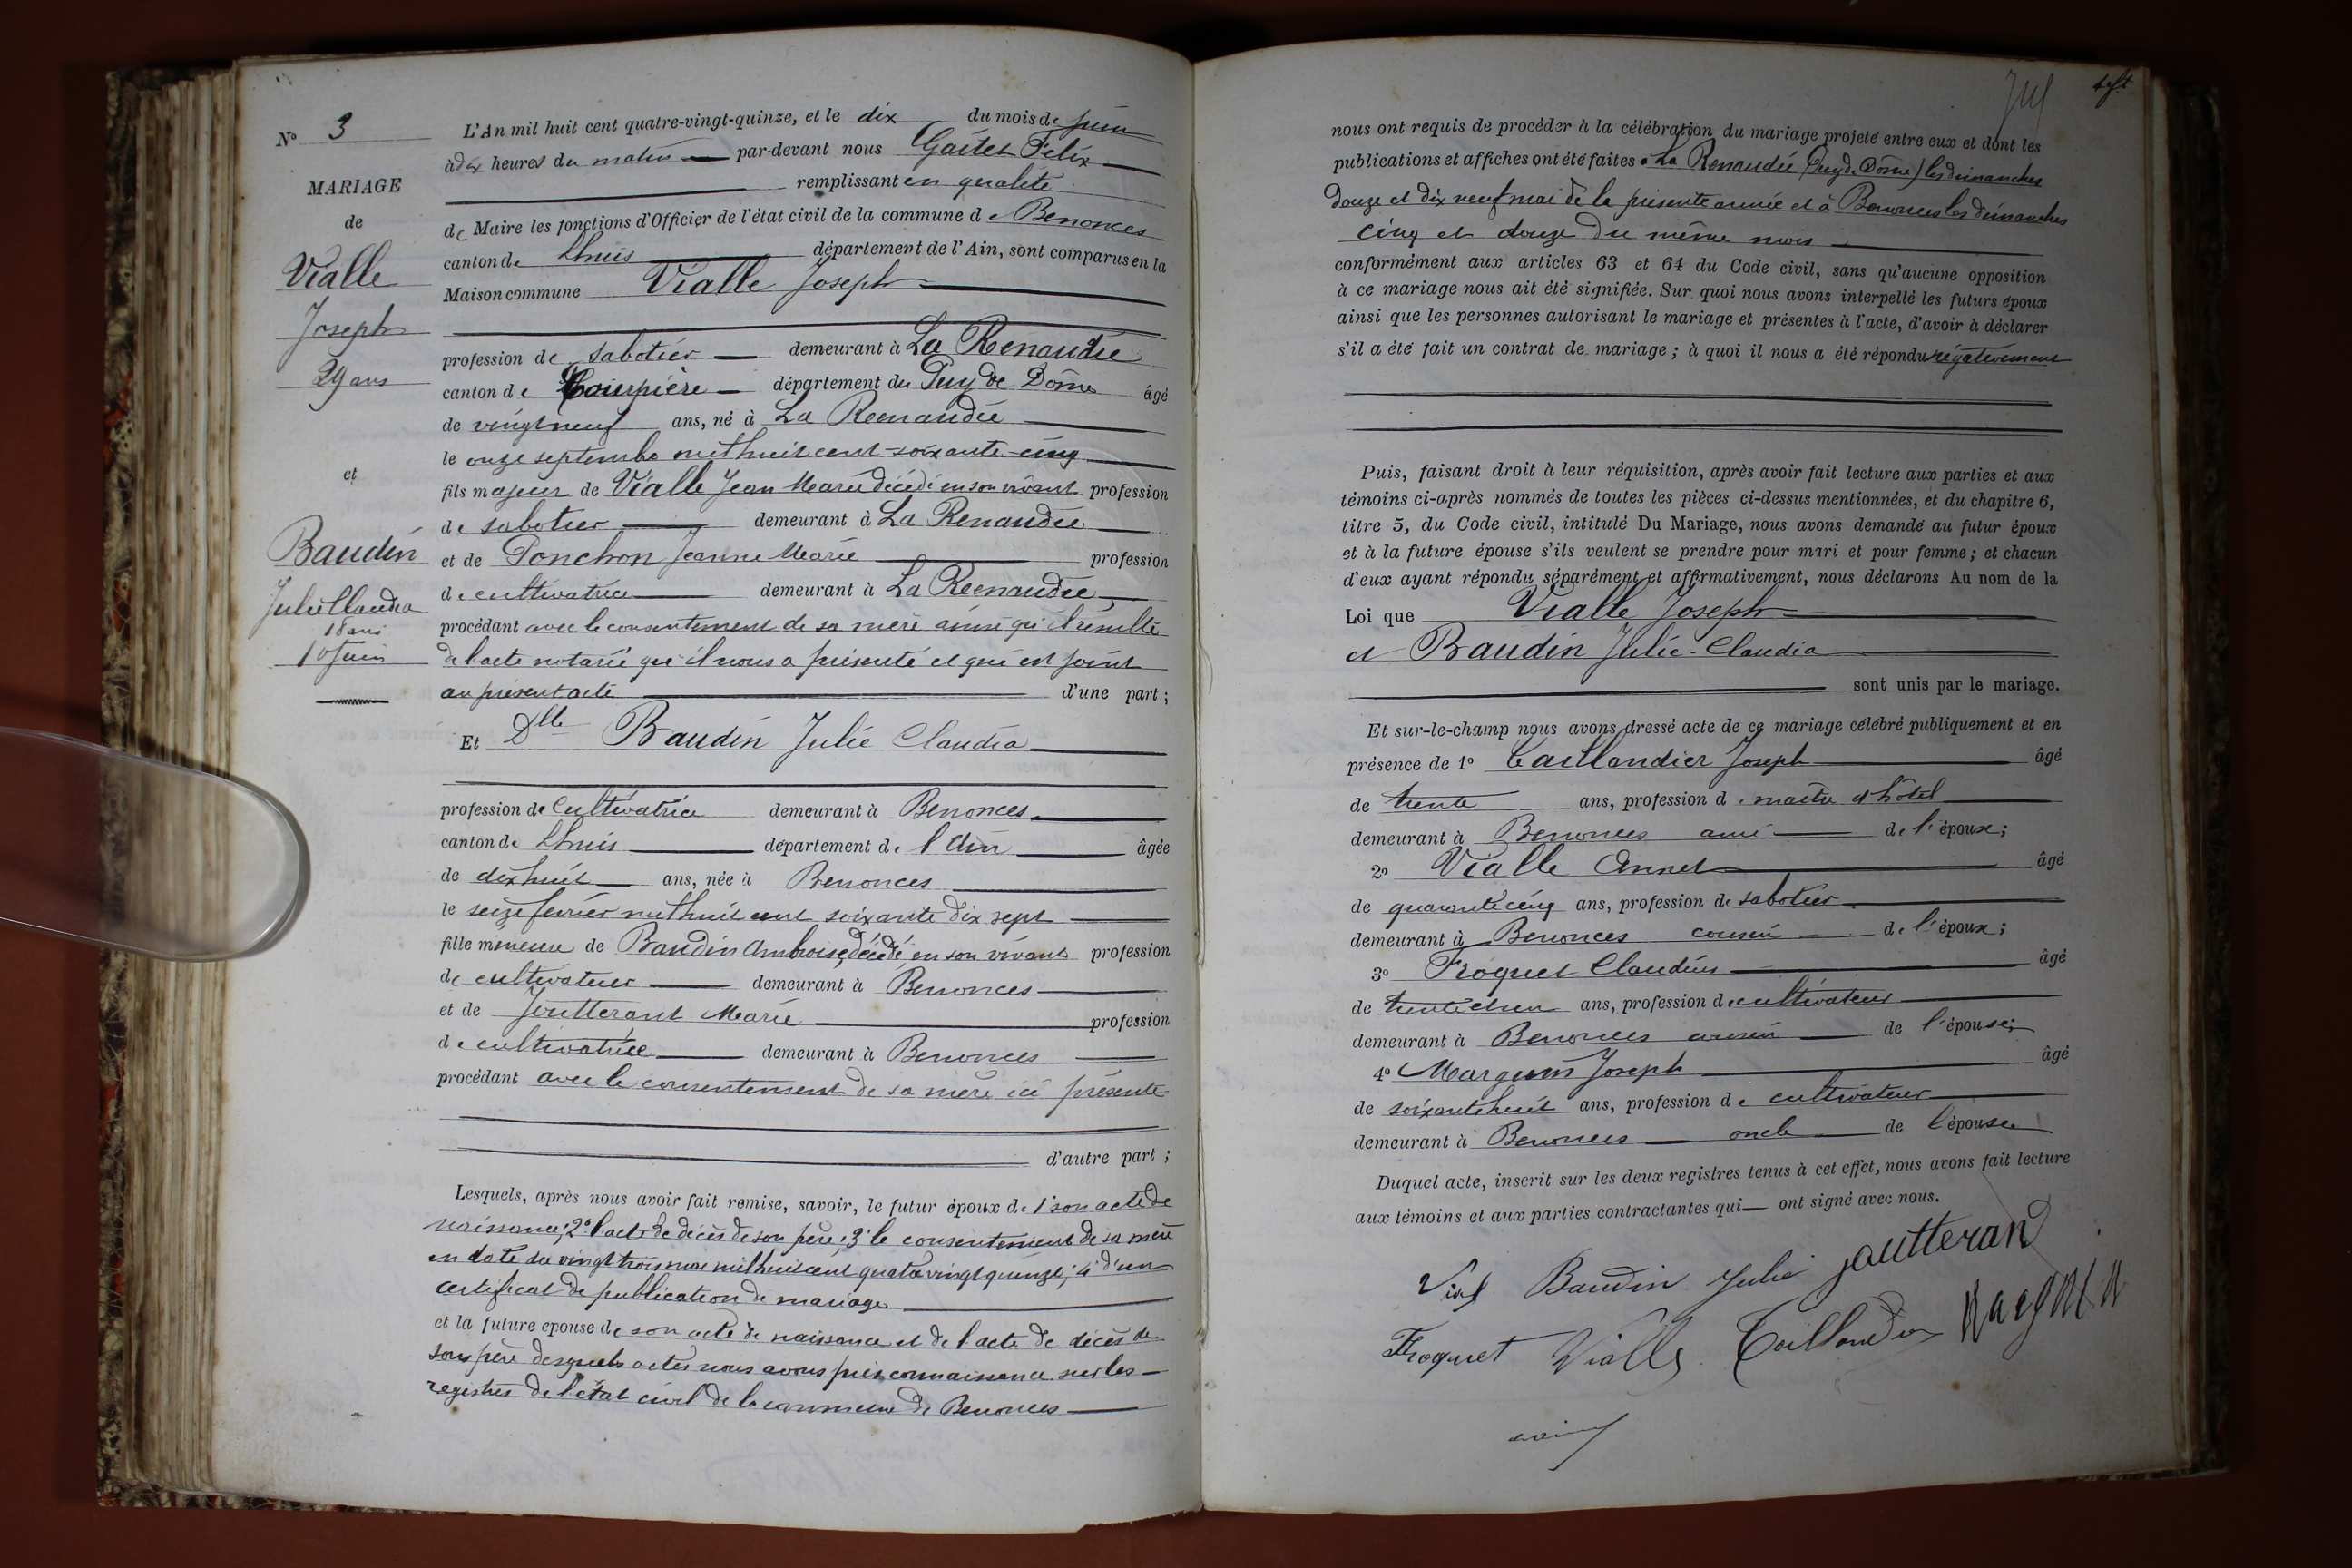 N° 3
MARIAGE
de
Vialle
Joseph
29 ans
et
Baudin
Julie Claudia
18 ans
10 Juin
L'An mil huit cent quatre-vingt-quinze, et le dix du mois de Juin
à dix heures du matin par-devant nous Gaitet Félix
remplissant en qualité
de Maire les fonctions d'Officier de l'état civil de la commune de Benonces
canton de Lhuis département de l'Ain, sont comparus en la
Maison commune Vialle Joseph
profession de sabotier demeurant à La Renaudie
canton de Courpière département du Puy de Dôme âgé
de vingt neuf ans, né à La Renaudie
le onze septembre mil huit cent soixante-cinq
fils majeur de Vialle Jean Marie décédé en son vivant profession
de sabotier demeurant à La Renaudie
et de Ponchon Jeanne Marie profession
de cultivatrice demeurant à La Renaudie
procédant avec le consentement de sa mère ainsi qu'il résulte
de l'acte notarié qu'il nous a présenté et qui est joint
au présent acte d'une part ;
Et Dlle Baudin Julie Claudia
profession de Cultivatrice demeurant à Benonces
canton de Lhuis département de l'Ain âgée
de dix huit ans, née à Benonces
le seize février mil huit cent soixante dix sept
fille mineure de Baudin Ambroise, décédé, en son vivant profession
de cultivateur demeurant à Benonces
et de Joutterant Marie profession
de cultivatrice demeurant à Benonces
procédant avec le consentement de sa mère ici présente
d'autre part ;
Lesquels, après nous avoir fait remise, savoir, le futur époux de 1° son acte de
naissance ; 2° l'acte de décès de son père ; 3° le consentement de sa mère
en date du vingt trois mai mil huit cent quatre vingt quinze ; 4° d'un
certificat de publication de mariage
et la future épouse de son acte de naissance et de l'acte de décès de
son père desquels actes nous avons pris connaissance sur les
registres de l'état civil de la commune de Benonces
nous ont requis de procéder à la célébration du mariage projeté entre eux et dont les
publications et affiches ont été faites à La Renaudie (Puy de Dôme) les dimanches
douze et dix neuf mai de la présente année et à Benonces les dimanches
cinq et douze du même mois
conformément aux articles 63 et 64 du Code civil, sans qu'aucune opposition
à ce mariage nous ait été signifiée. Sur quoi nous avons interpellé les futurs époux
ainsi que les personnes autorisant le mariage et présentes à l'acte, d'avoir à déclarer
s'il a été fait un contrat de mariage ; à quoi il nous a été répondu négativement
Puis, faisant droit à leur réquisition, après avoir fait lecture aux parties et aux
témoins ci-après nommés de toutes les pièces ci-dessus mentionnées, et du chapitre 6,
titre 5, du Code civil, intitulé Du Mariage, nous avons demandé au futur époux
et à la future épouse s'ils veulent se prendre pour mari et pour femme ; et chacun
d'eux ayant répondu séparément et affirmativement, nous déclarons Au nom de la
Loi que Vialle Joseph
et Baudin Julie-Claudia
sont unis par le mariage.
Et sur-le-champ nous avons dressé acte de ce mariage célébré publiquement et en
présence de 1° Taillandier Joseph âgé
de trente ans, profession de maître d'hôtel
demeurant à Benonces ami de l'époux ;
2° Vialle Annet âgé
de quarante cinq ans, profession de sabotier
demeurant à Benonces cousin de l'époux ;
3° Froquet Claudius âgé
de trente et un ans, profession de cultivateur
demeurant à Benonces cousin de l'épouse ;
4° Marguin Joseph âgé
de soixante huit ans, profession de cultivateur
demeurant à Benonces oncle de l'épouse
Duquel acte, inscrit sur les deux registres tenus à cet effet, nous avons fait lecture
aux témoins et aux parties contractantes qui ont signé avec nous.
Vial Baudin Julie joutterand
Froquet Vialle Taillandier Marguin